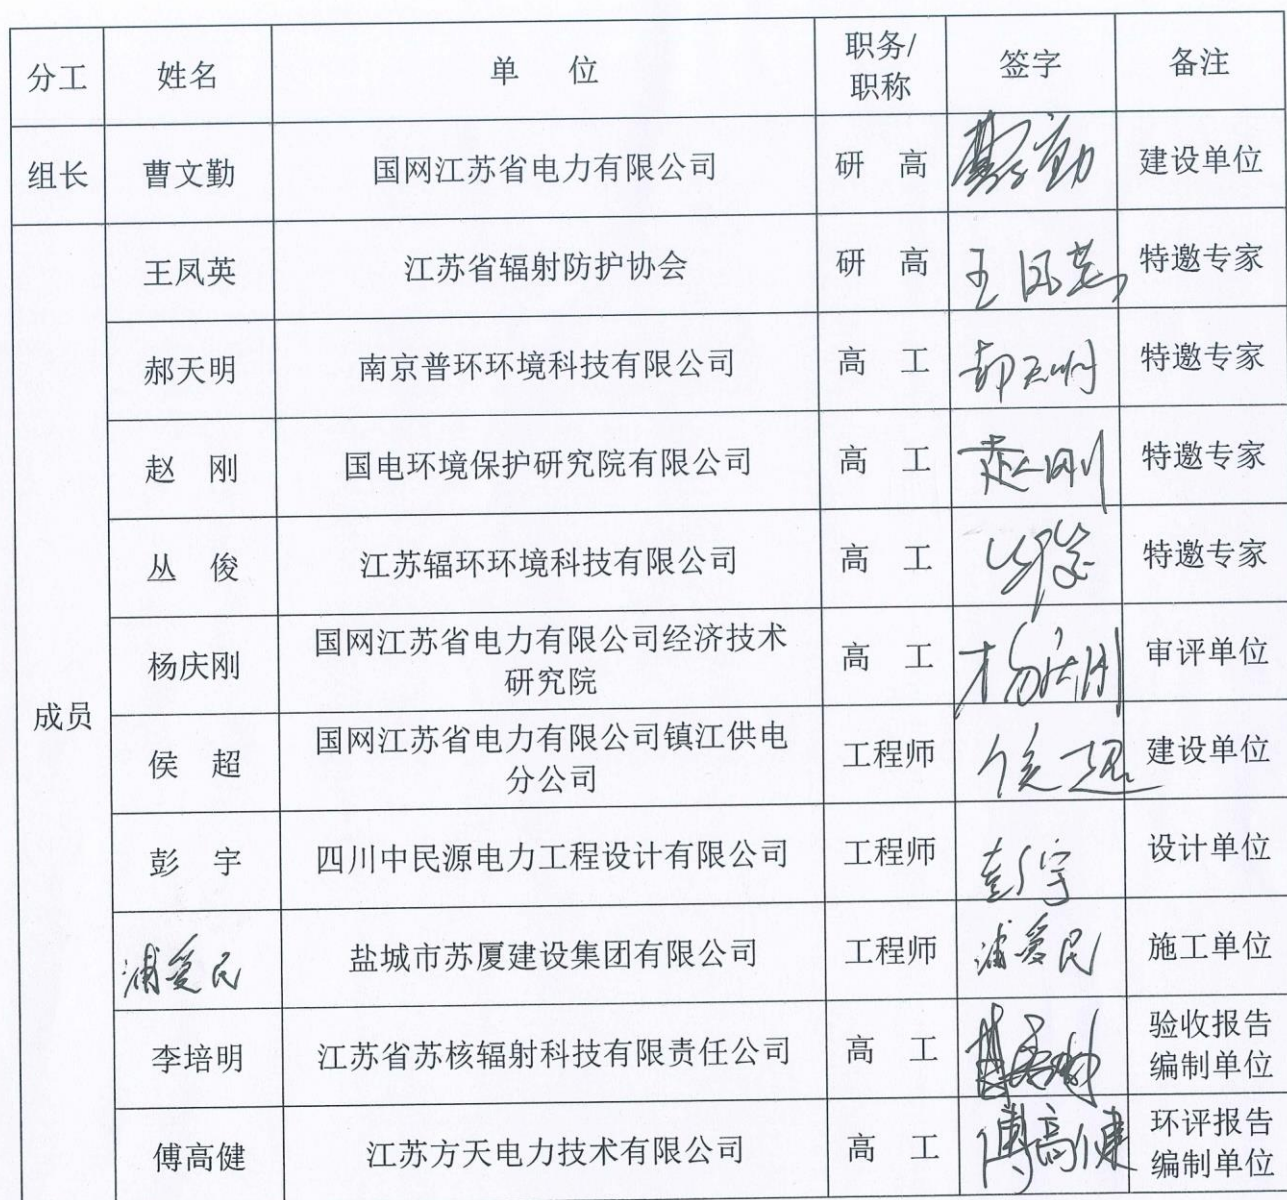 分工 姓名 单 位 职务/职称 签字 备注
组长 曹文勤 国网江苏省电力有限公司 研 高 曹文勤 建设单位
成员
王凤英 江苏省辐射防护协会 研 高 王凤英 特邀专家
郝天明 南京普环环境科技有限公司 高 工 郝天明 特邀专家
赵 刚 国电环境保护研究院有限公司 高 工 赵刚 特邀专家
丛 俊 江苏辐环环境科技有限公司 高 工 丛俊 特邀专家
杨庆刚 国网江苏省电力有限公司经济技术
研究院 高 工 杨庆刚 审评单位
侯 超 国网江苏省电力有限公司镇江供电
分公司 工程师 侯超 建设单位
彭 宇 四川中民源电力工程设计有限公司 工程师 彭宇 设计单位
浦爱民 盐城市苏厦建设集团有限公司 工程师 浦爱民 施工单位
李培明 江苏省苏核辐射科技有限责任公司 高 工 验收报告
编制单位
傅高健 江苏方天电力技术有限公司 高 工 傅高健 环评报告
编制单位